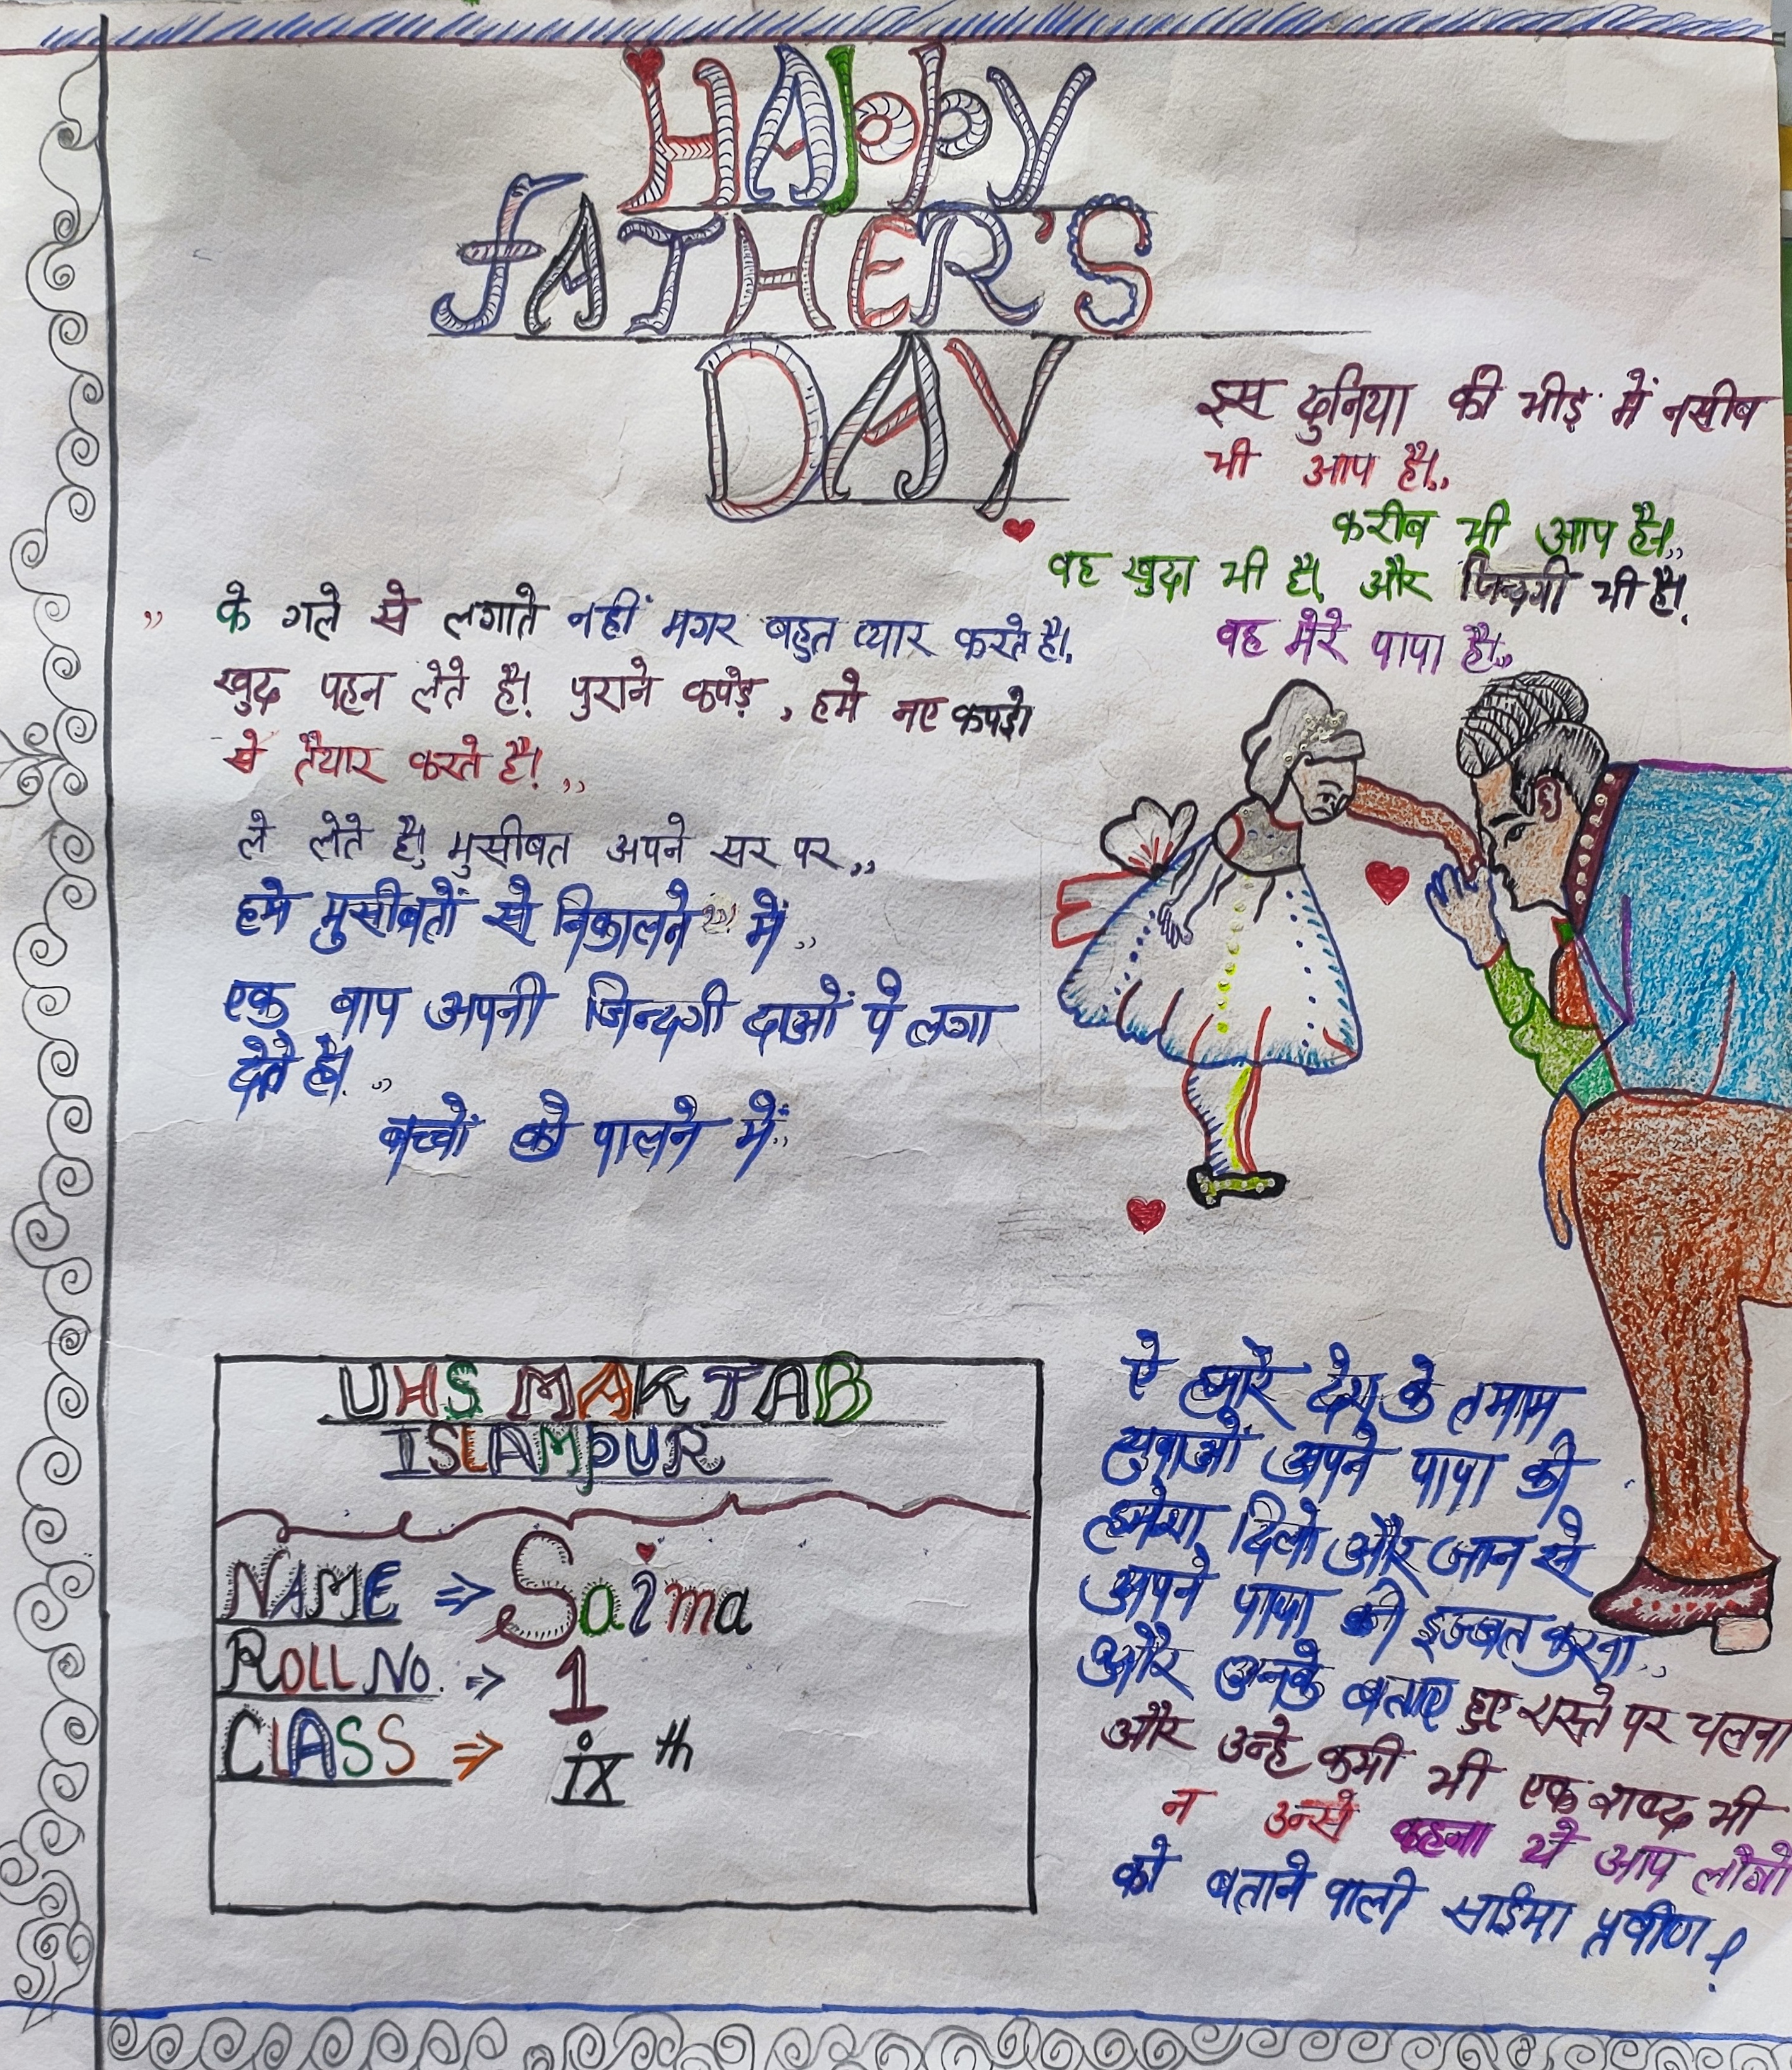 HAppy
fATHER'S
DAY
इस दुनिया की भीड़ में नसीब
भी आप है।,,
करीब भी आप है।,,
वह खुदा भी है। और जिन्दगी भी है।
वह मेरे पापा है।,,
,, के गले से लगाते नहीं मगर बहुत प्यार करते है।
खुद पहन लेते है। पुराने कपड़े, हमे नए कपड़ो
से तैयार करते है। ,,
ले लेते है। मुसीबत अपने सर पर,,
हमे मुसीबतों से निकालने में,,
एक बाप अपनी जिन्दगी दाओं पे लगा
देते है। ,,
बच्चों को पालने में,,
UHS MAKTAB
ISLAMPUR
NAME ⇒ Saima
ROLL NO. ⇒ 1
CLASS ⇒ ix th
ऐ हमारे देश के तमाम
युवाओं अपने पापा की
हमेशा दिलो और जान से
अपने पापा की इज्जत करना,,
और उनके बताए हुए रास्ते पर चलना
और उन्हे कभी भी एक शब्द भी
न उन्से कहना ये आप लोगो
को बताने वाली साईमा प्रवीण।